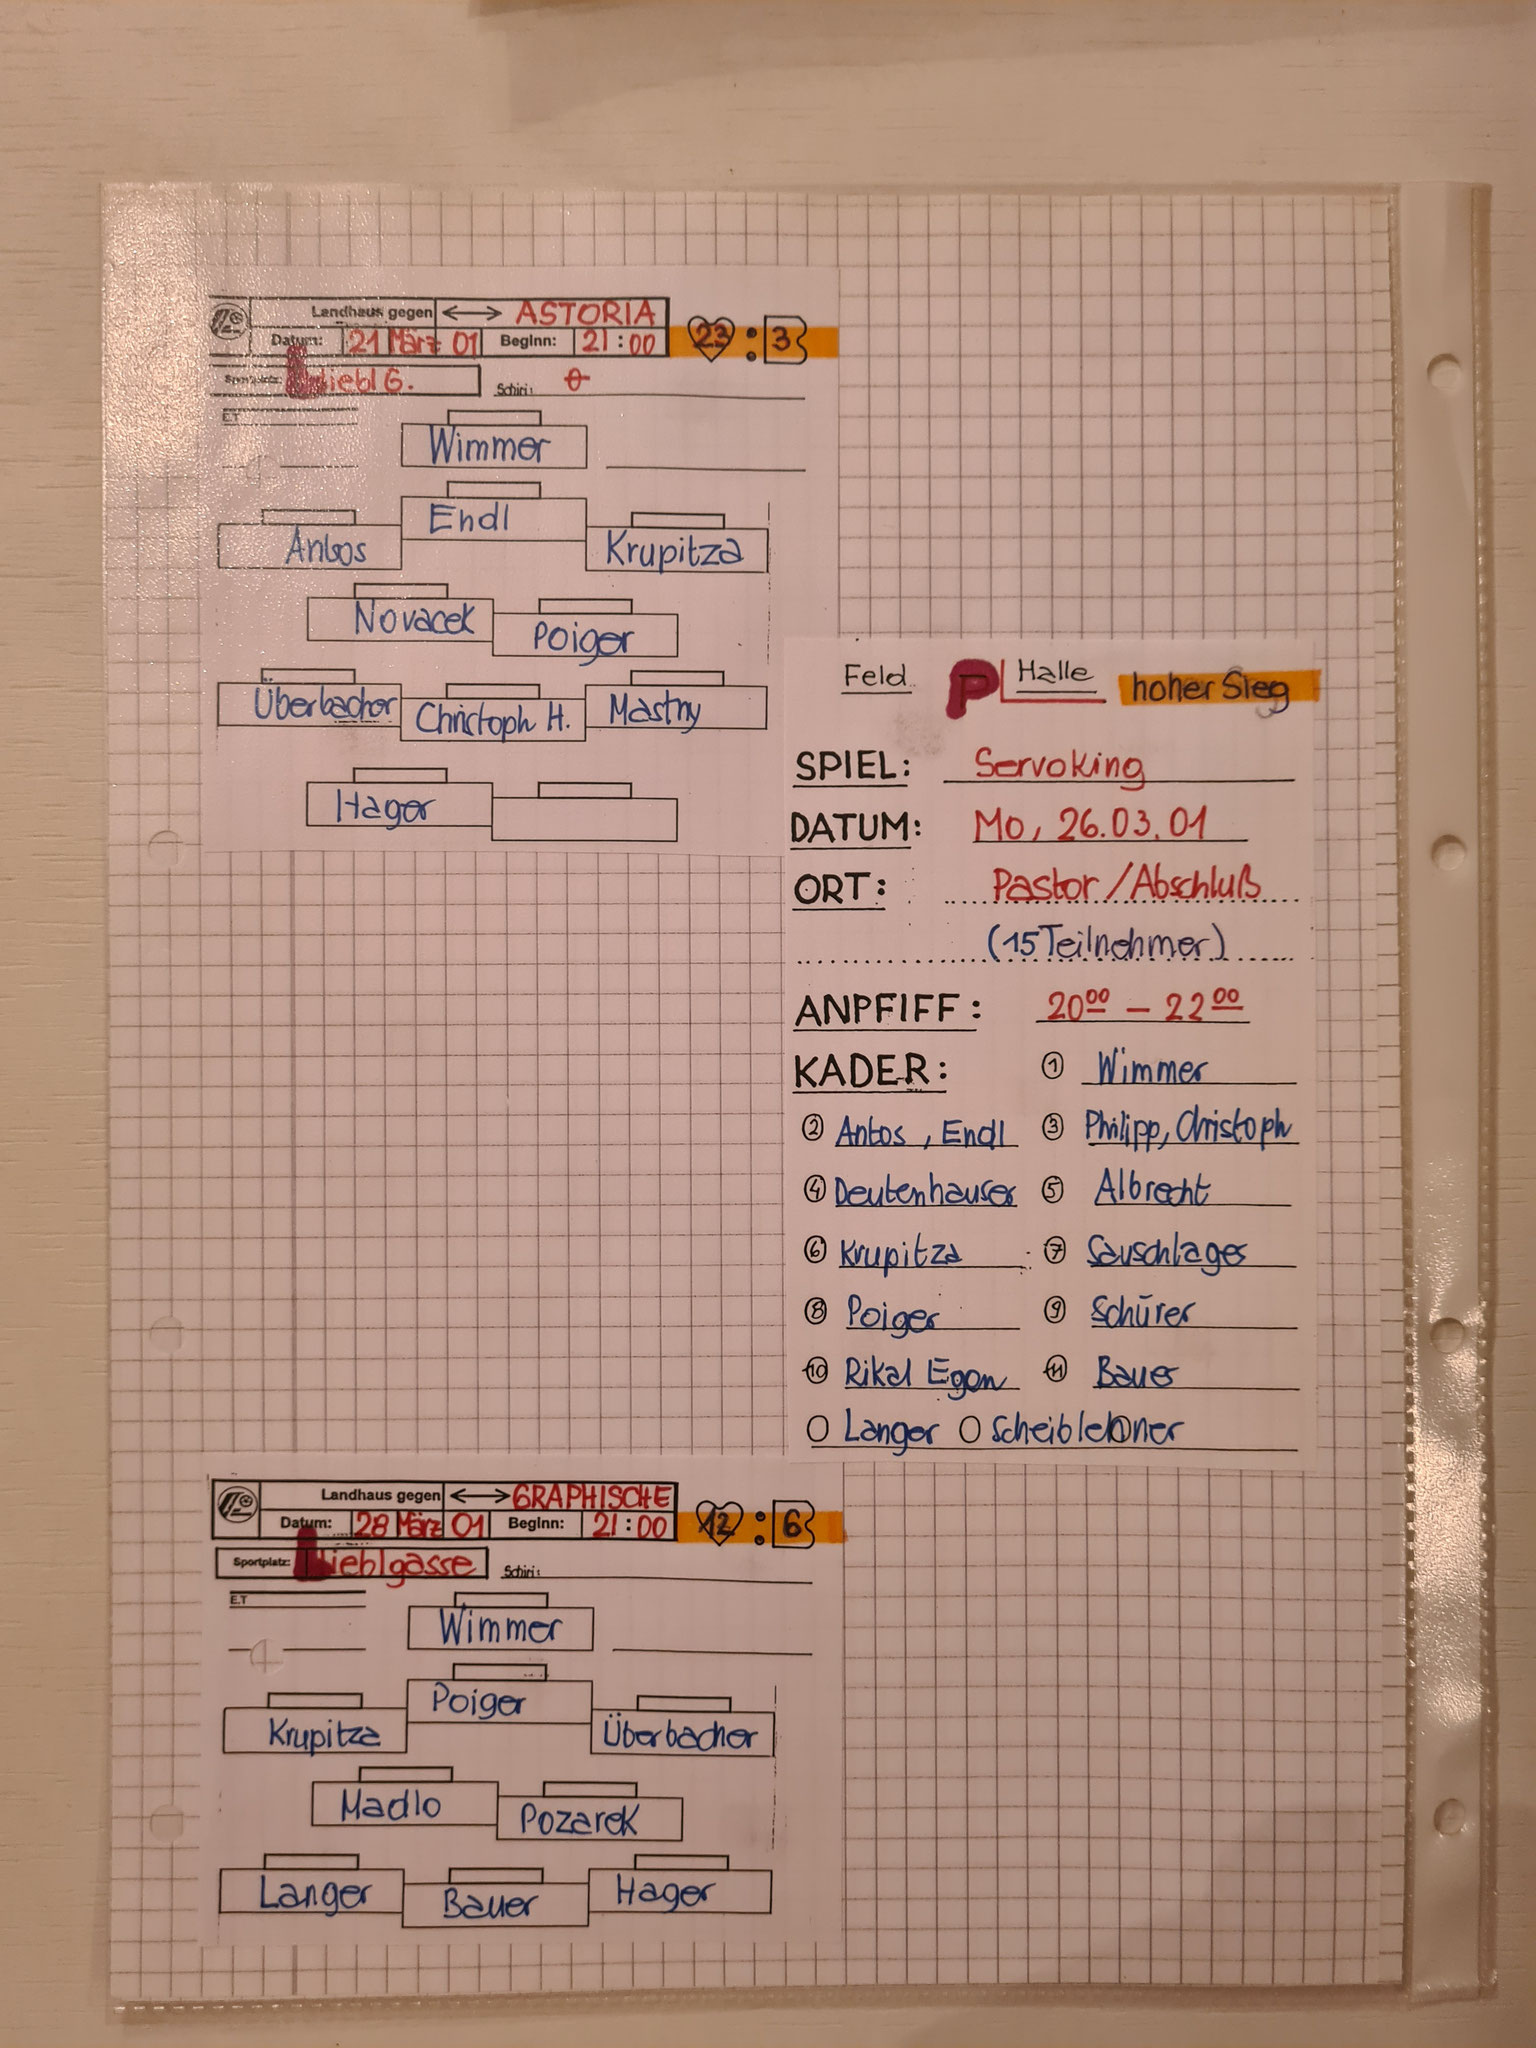 Landhaus gegen ↔ ASTORIA
Datum: 21 März 01 Beginn: 21:00 23 : 3
Sportplatz: Liebl G. Schiri:
E.T
Wimmer
Endl
Anbos Krupitza
Novacek Poiger
Überbacher Christoph H. Mastny
Hager
Feld P Halle hoher Sieg
SPIEL: Servoking
DATUM: Mo, 26.03.01
ORT: Pastor / Abschluß
(15 Teilnehmer)
ANPFIFF: 20⁰⁰ – 22⁰⁰
KADER: 1 Wimmer
2 Anbos, Endl 3 Philipp, Christoph
4 Deutenhauser 5 Albrecht
6 Krupitza 7 Sauschlager
8 Poiger 9 Schürer
10 Rikal Egon 11 Bauer
Langer
Landhaus gegen ↔ GRAPHISCHE
Datum: 28 März 01 Beginn: 21:00 12 : 6
Sportplatz: Lieblgasse Schiri:
E.T
Wimmer
Poiger
Krupitza Überbacher
Madlo Pozarek
Langer Bauer Hager